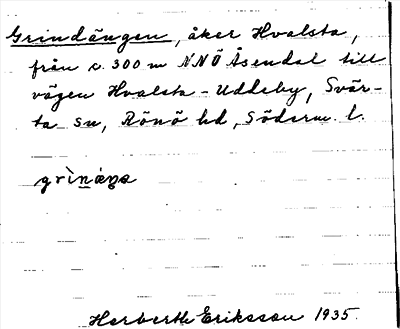 Grindängen, åker Hvalsta,
från c. 300 m NNÖ Åsendal till
vägen Hvalsta - Uddeby, Svär-
ta sn, Rönö hd, Söderm. l.
Herberth Eriksson 1935.